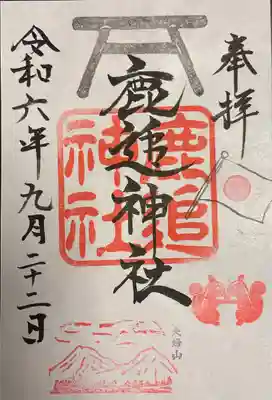 奉拝
鹿追神社
鹿追
神社
夫婦山
令和六年九月二十二日